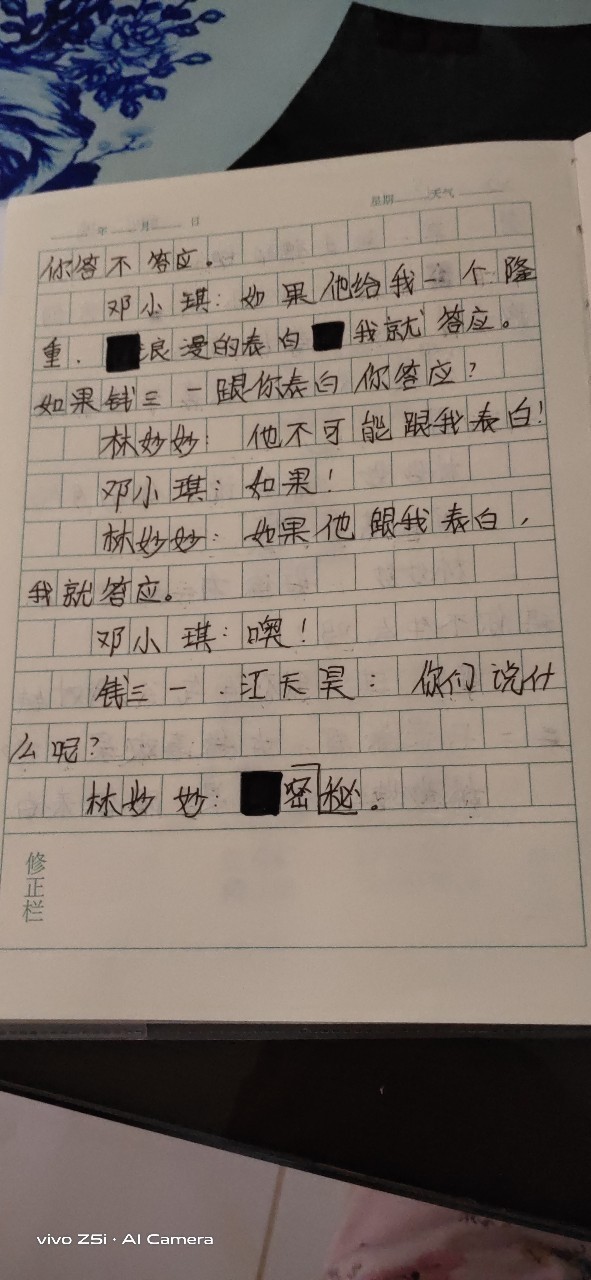 年 月 日 星期 天气
你答不答应。
邓小琪：如果他给我一个隆
重．浪漫的表白我就答应。
如果钱三一跟你表白你答应？
林妙妙：他不可能跟我表白！
邓小琪：如果！
林妙妙：如果他跟我表白，
我就答应。
邓小琪：噢！
钱三一．江天昊：你们说什
么呢？
林妙妙：密秘。
修正栏
vivo Z5i · AI Camera